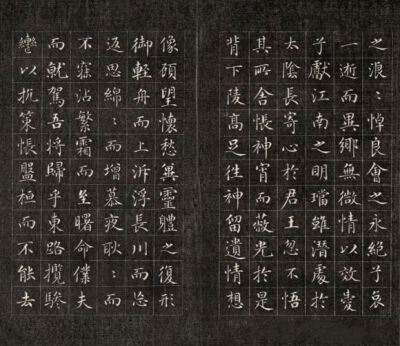 之浪浪悼良會之永絕兮哀
一逝而異鄉無微情以效愛
兮獻江南之明璫雖潛處於
太陰長寄心於君王忽不悟
其所舍悵神宵而蔽光於是
背下陵高足往神留遺情想
像顧望懷愁冀靈體之復形
御輕舟而上泝浮長川而忘
返思綿綿而增慕夜耿耿而
不寐沾繁霜而至曙命僕夫
而就駕吾將歸乎東路攬騑
轡以抗策悵盤桓而不能去